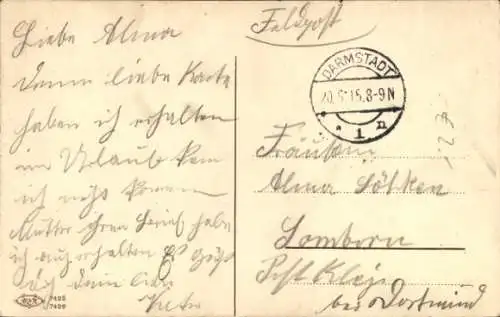 Liebe Alma
Deine liebe Karte
haben ich erhalten
im Urlaub kan
ich nicht kommen
Mutter ihren Brief habe
ich auch erhalten Es Grüßt
dein lieber
Feldpost
DARMSTADT
20.5.15.8-9N
* 1 n
Fräulein
Alma Sölken
Somborn
Post Kley
bei Dortmund
7495
7499